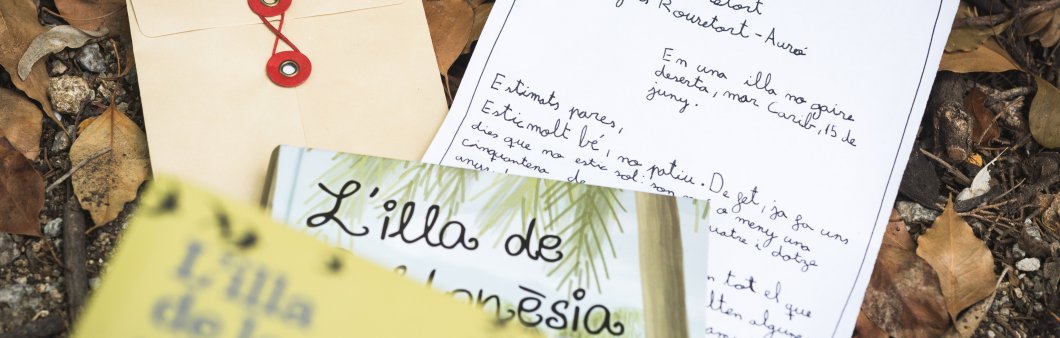 Rouretort-Auró
En una illa no gaire
deserta, mar Carib, 15 de
juny.
Estimats pares,
Estic molt bé, no patiu. De fet, ja fa uns
dies que no estic sol: són
cinquantena de a meny una
anys quatre i dotze
n tot el que
lten algune
L'illa de
nēsia
L'illa
de